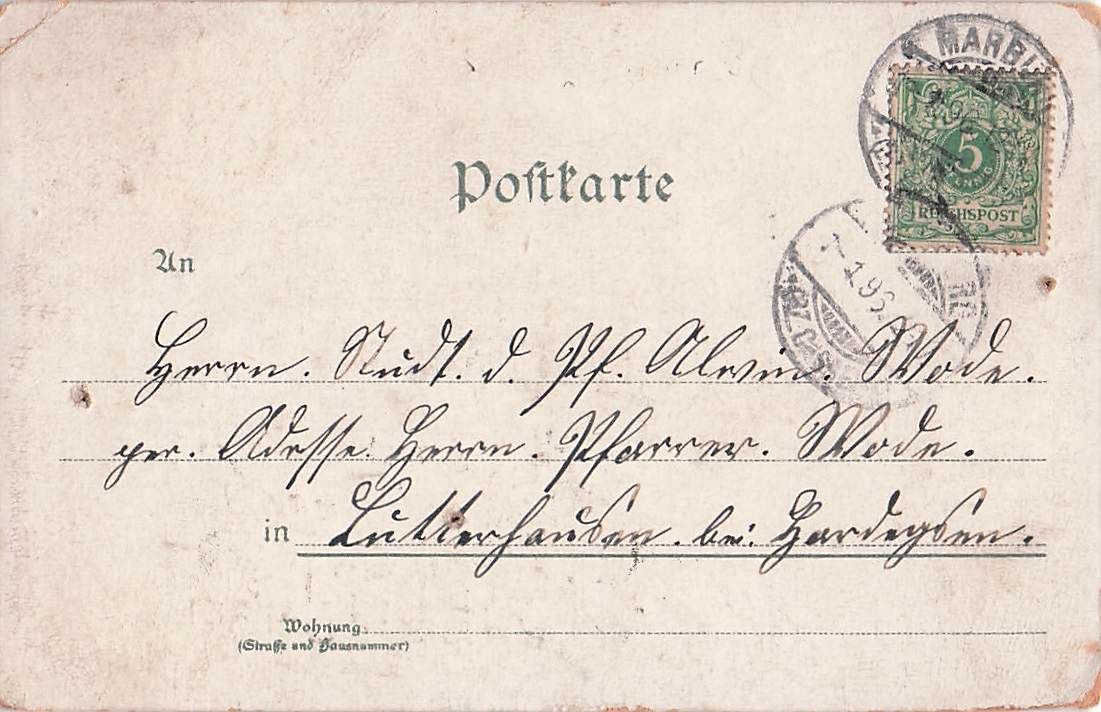 MARBU
5
REICHSPOST
Postkarte
7
1.96.
An
Herrn. Studt. d. Pf. Alwin. Wode.
per. Adresse. Herrn. Pfarrer. Wode.
in Lutterhausen. bei. Hardegsen.
Wohnung
(Straße und Hausnummer)